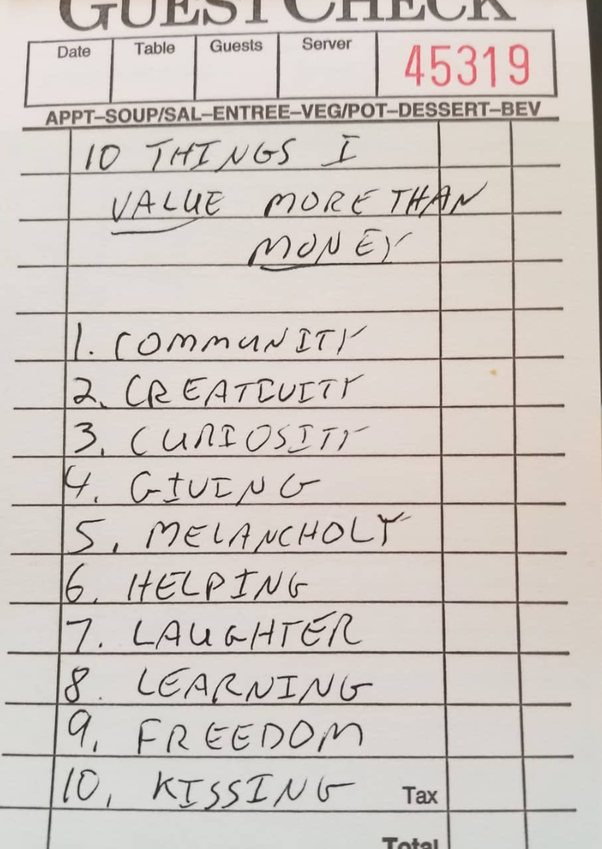 GUEST CHECK
Date Table Guests Server 45319
APPT–SOUP/SAL–ENTREE–VEG/POT–DESSERT–BEV
10 THINGS I
VALUE MORE THAN
MONEY
1. COMMUNITY
2. CREATIVITY
3. CURIOSITY
4. GIVING
5. MELANCHOLY
6. HELPING
7. LAUGHTER
8. LEARNING
9. FREEDOM
10. KISSING Tax
Total